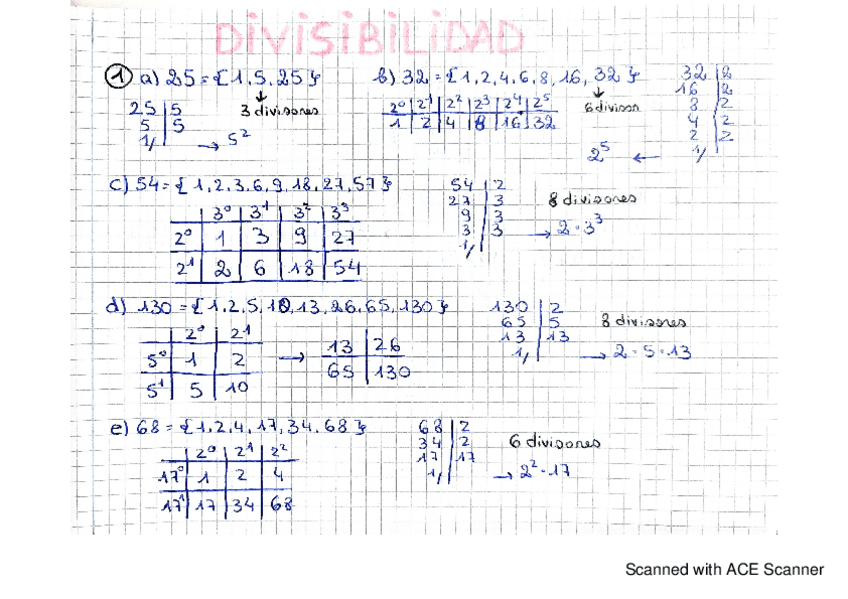 DIVISIBILIDAD
① a) 25 = {1, 5, 25}
↓
3 divisores
25 | 5
5 | 5
1/ → 5²
b) 32 = {1, 2, 4, 6, 8, 16, 32}
↓
6 divisor
2⁰ | 2¹ | 2² | 2³ | 2⁴ | 2⁵
1 | 2 | 4 | 8 | 16 | 32
32 | 2
16 | 2
8 | 2
4 | 2
2 | 2
1/
2⁵ ←
c) 54 = {1, 2, 3, 6, 9, 18, 27, 57}
3⁰ | 3¹ | 3² | 3³
2⁰ | 1 | 3 | 9 | 27
2¹ | 2 | 6 | 18 | 54
54 | 2
27 | 3
9 | 3
3 | 3
1/
8 divisores
→ 2 · 3³
d) 130 = {1, 2, 5, 10, 13, 26, 65, 130}
2⁰ | 2¹
5⁰ | 1 | 2
5¹ | 5 | 10
→
13 | 26
65 | 130
130 | 2
65 | 5
13 | 13
1/
8 divisores
→ 2 · 5 · 13
e) 68 = {1, 2, 4, 17, 34, 68}
2⁰ | 2¹ | 2²
17⁰ | 1 | 2 | 4
17¹ | 17 | 34 | 68
68 | 2
34 | 2
17 | 17
1/
6 divisores
→ 2² · 17
Scanned with ACE Scanner